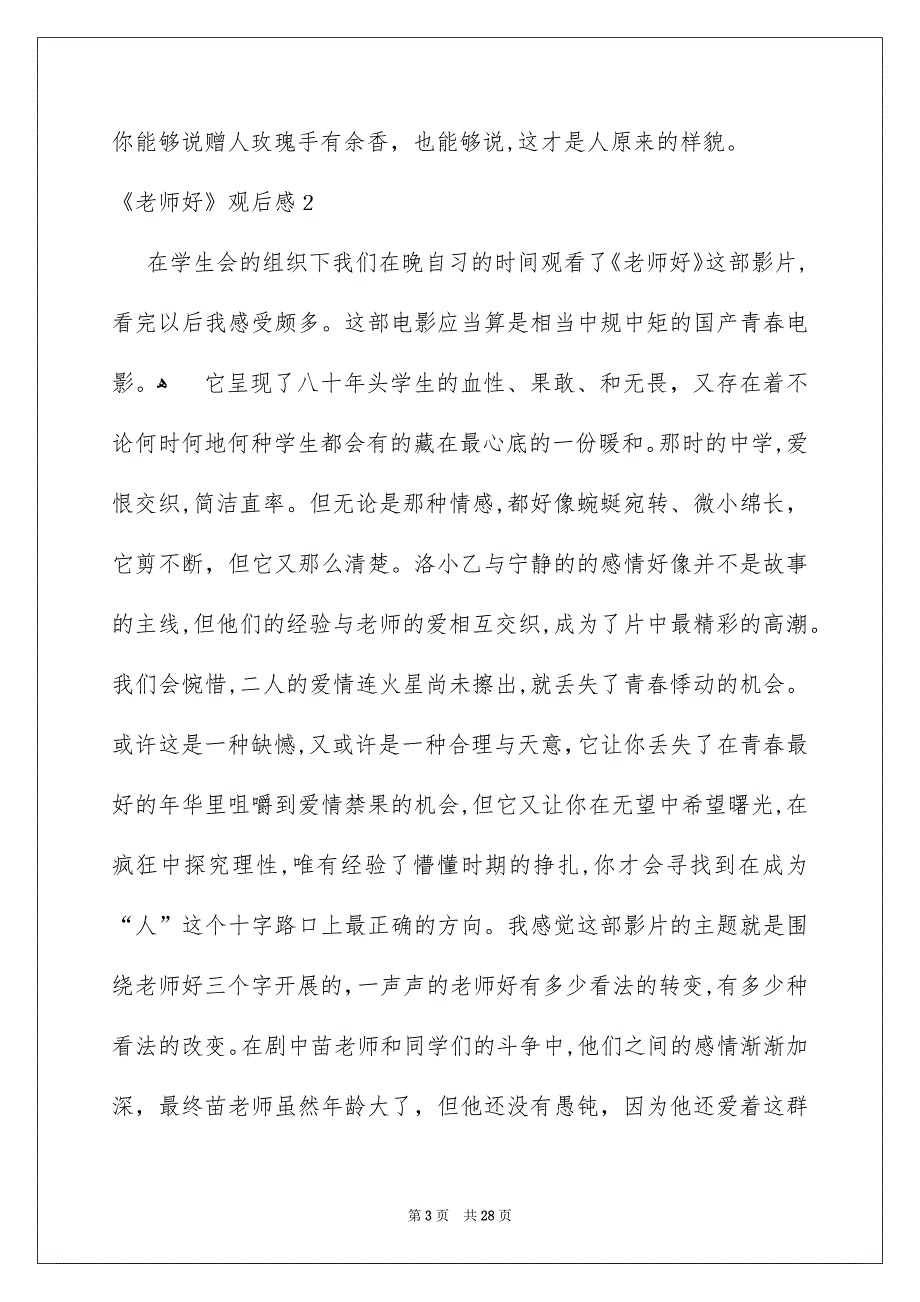 你能够说赠人玫瑰手有余香，也能够说,这才是人原来的样貌。
《老师好》观后感2
在学生会的组织下我们在晚自习的时间观看了《老师好》这部影片,
看完以后我感受颇多。这部电影应当算是相当中规中矩的国产青春电
影。ﻫ 它呈现了八十年头学生的血性、果敢、和无畏，又存在着不
论何时何地何种学生都会有的藏在最心底的一份暖和。那时的中学,爱
恨交织,简洁直率。但无论是那种情感,都好像蜿蜒宛转、微小绵长，
它剪不断，但它又那么清楚。洛小乙与宁静的的感情好像并不是故事
的主线,但他们的经验与老师的爱相互交织,成为了片中最精彩的高潮。
我们会惋惜,二人的爱情连火星尚未擦出,就丢失了青春悸动的机会。
或许这是一种缺憾,又或许是一种合理与天意，它让你丢失了在青春最
好的年华里咀嚼到爱情禁果的机会,但它又让你在无望中希望曙光,在
疯狂中探究理性,唯有经验了懵懂时期的挣扎,你才会寻找到在成为
“人”这个十字路口上最正确的方向。我感觉这部影片的主题就是围
绕老师好三个字开展的，一声声的老师好有多少看法的转变,有多少种
看法的改变。在剧中苗老师和同学们的斗争中,他们之间的感情渐渐加
深，最终苗老师虽然年龄大了，但他还没有愚钝，因为他还爱着这群
第 3 页 共 28 页